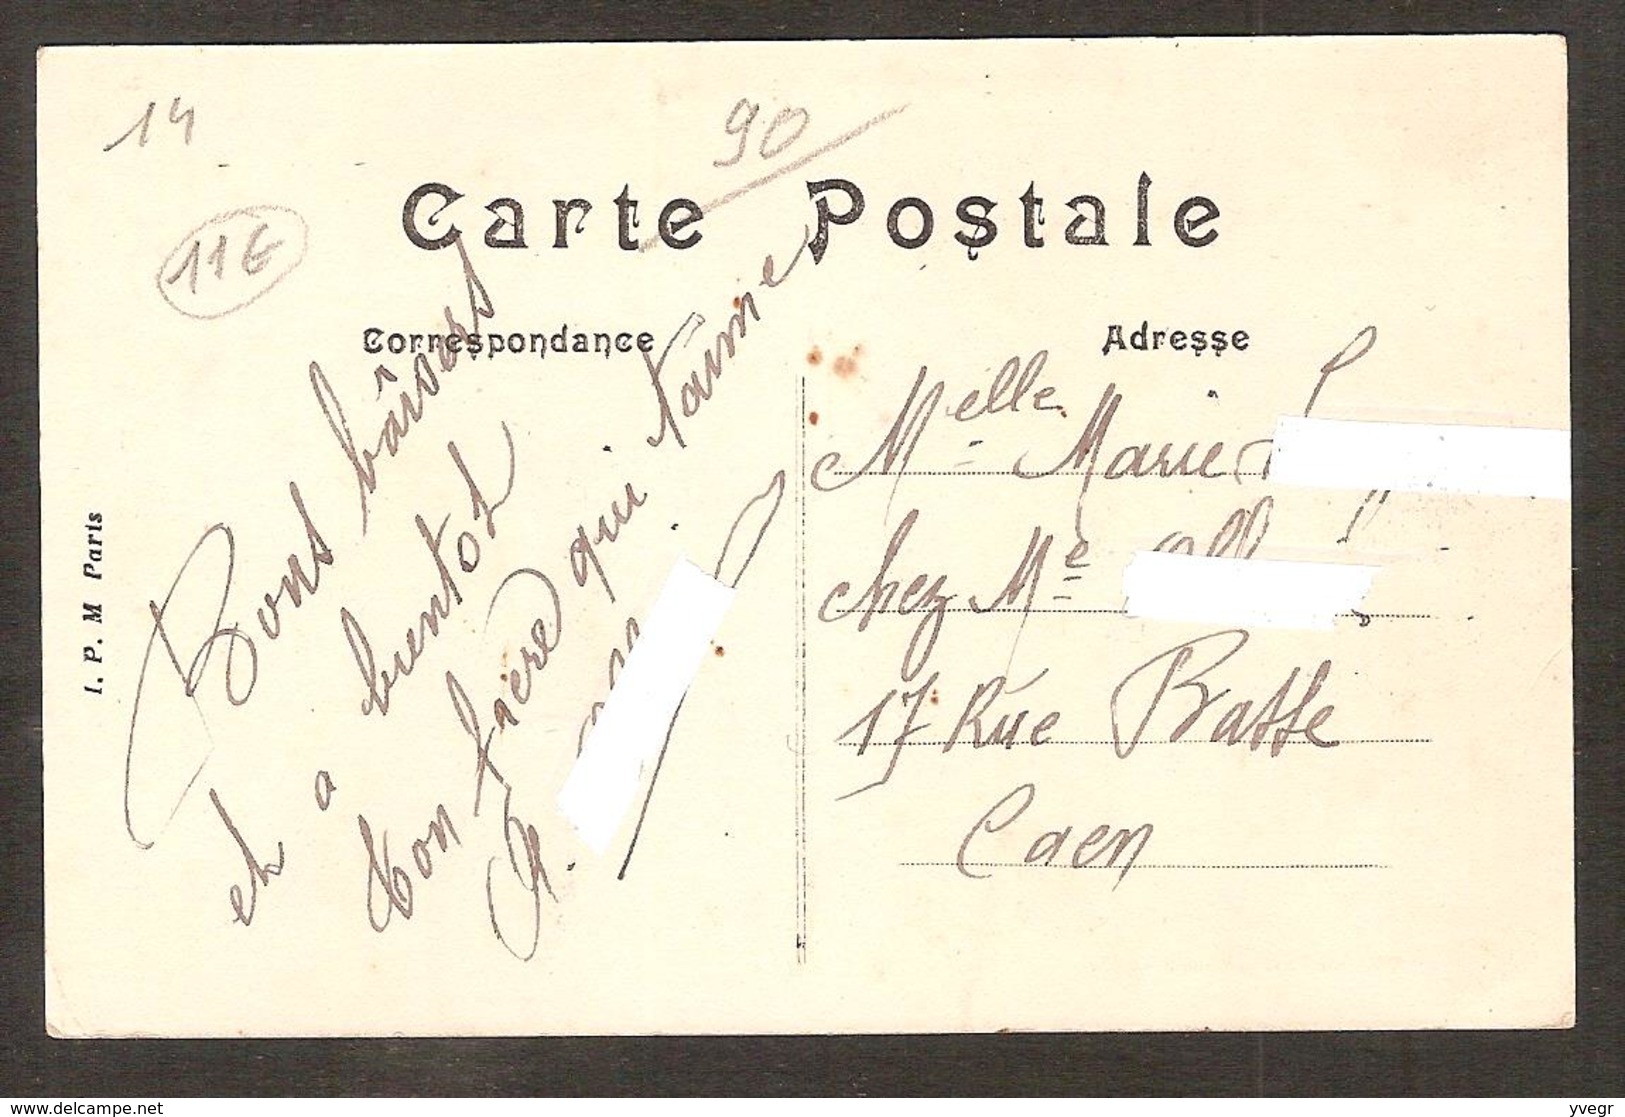 14
90
11€
Carte Postale
Correspondance
Adresse
I. P. M Paris
Bons bâisers
et a bientot
ton frère qui t'aime
A.
Melle Marie
chez Me
17 Rue Basse
Caen
www.delcampe.net
yvegr